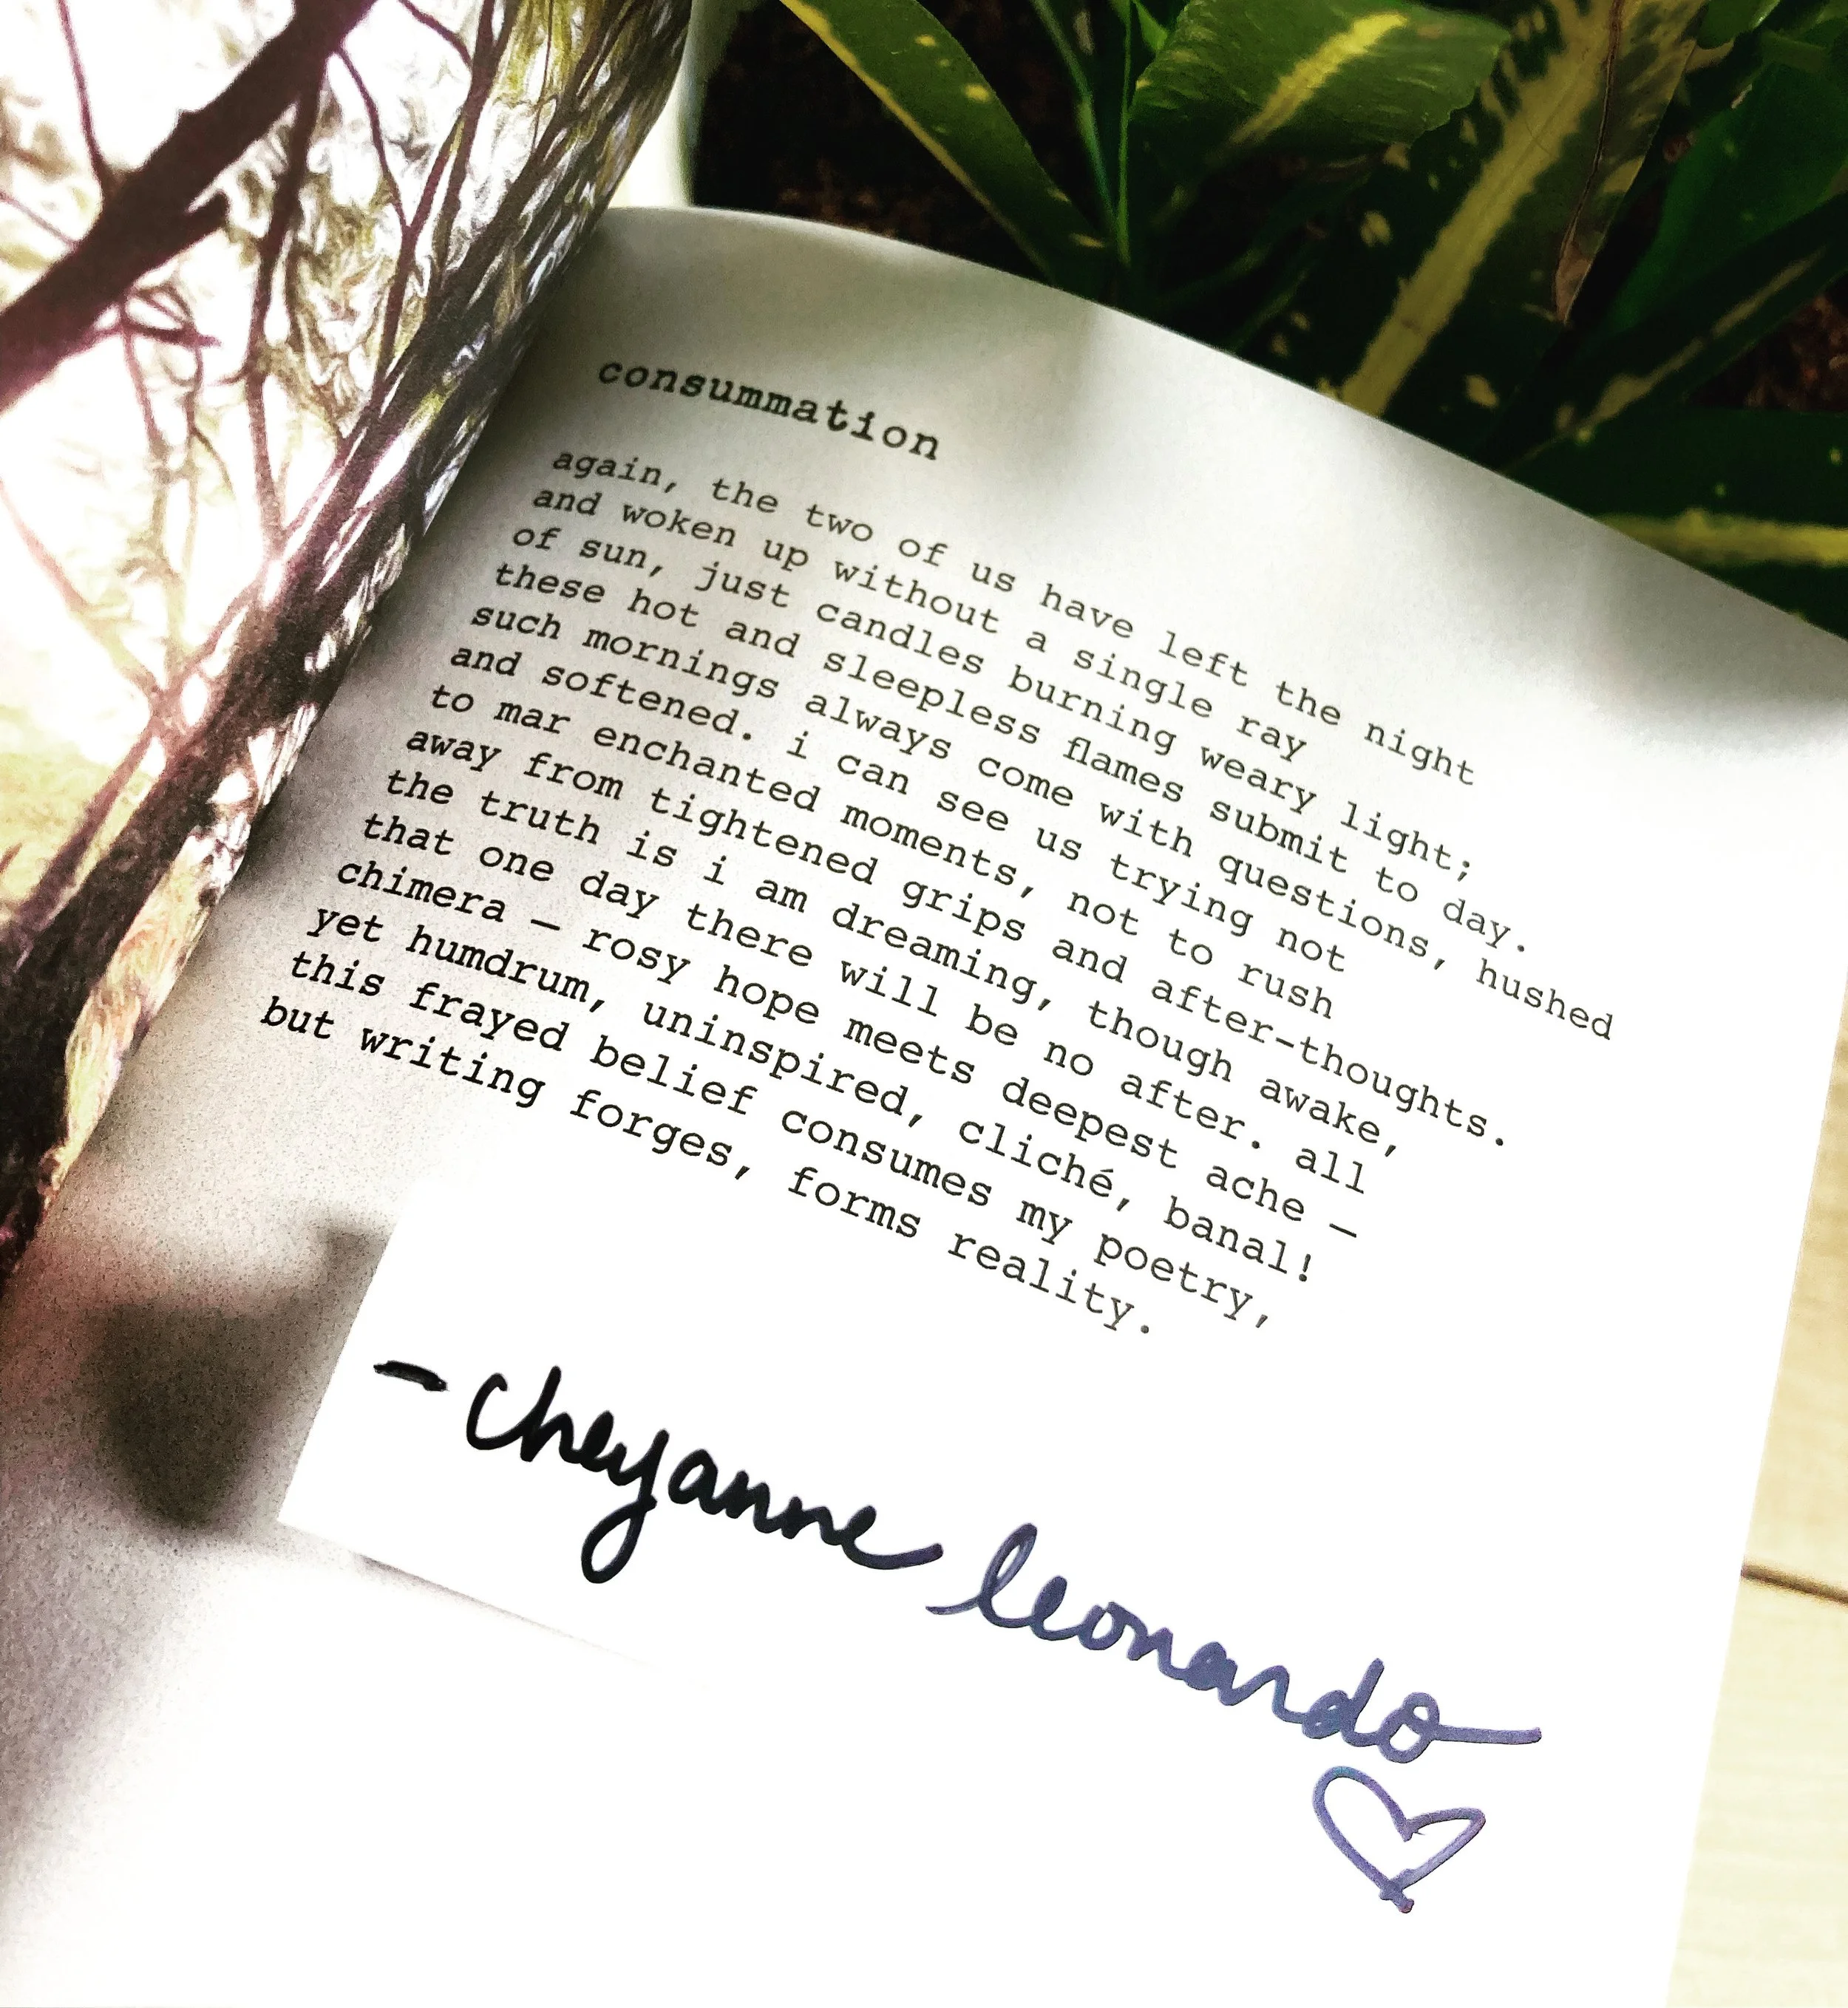 consummation
again, the two of us have left the night
and woken up without a single ray
of sun, just candles burning weary light;
these hot and sleepless flames submit to day.
such mornings always come with questions, hushed
and softened. i can see us trying not
to mar enchanted moments, not to rush
away from tightened grips and after-thoughts.
the truth is i am dreaming, though awake,
that one day there will be no after. all
chimera — rosy hope meets deepest ache —
yet humdrum, uninspired, cliché, banal!
this frayed belief consumes my poetry,
but writing forges, forms reality.
— cheyanne leonardo